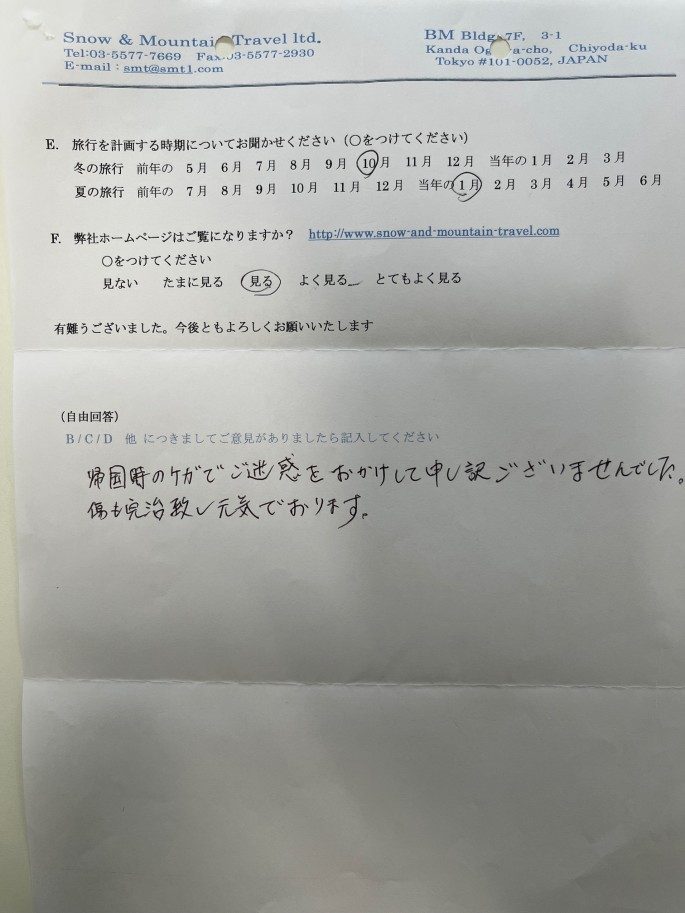 Snow & Mountain Travel ltd.
Tel:03-5577-7669 Fax:03-5577-2930
E-mail : smt@smt1.com
BM Bldg 7F, 3-1
Kanda Ogawa-cho, Chiyoda-ku
Tokyo #101-0052, JAPAN
E. 旅行を計画する時期についてお聞かせください（○をつけてください）
冬の旅行 前年の 5月 6月 7月 8月 9月 10月 11月 12月 当年の1月 2月 3月
夏の旅行 前年の 7月 8月 9月 10月 11月 12月 当年の1月 2月 3月 4月 5月 6月
F. 弊社ホームページはご覧になりますか？ http://www.snow-and-mountain-travel.com
○をつけてください
見ない たまに見る 見る よく見る とてもよく見る
有難うございました。今後ともよろしくお願いいたします
（自由回答）
B/C/D 他 につきましてご意見がありましたら記入してください
帰国時のケガでご迷惑をおかけして申し訳ございませんでした。
傷も完治致し元気でおります。